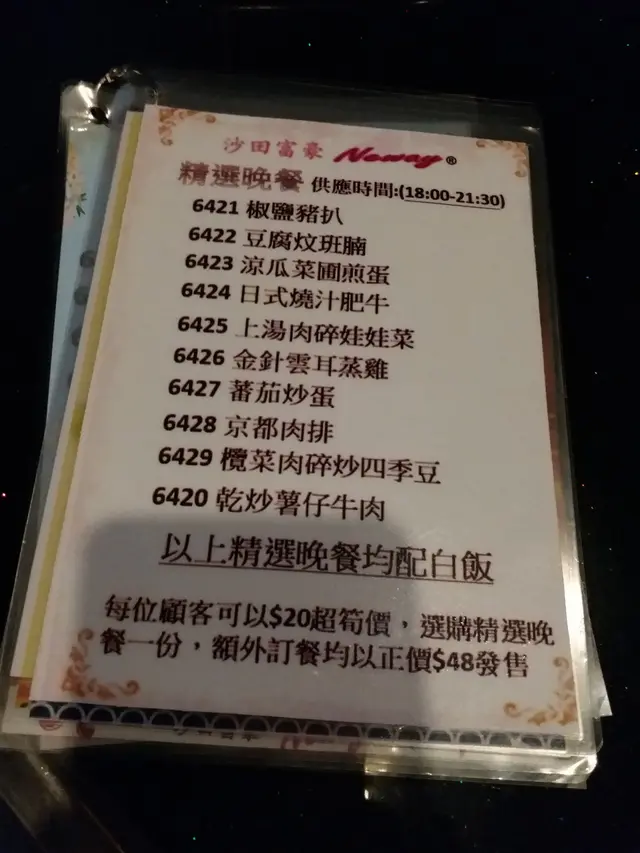 沙田富豪 Neway®
精選晚餐 供應時間:(18:00-21:30)
6421 椒鹽豬扒
6422 豆腐炆班腩
6423 涼瓜菜圃煎蛋
6424 日式燒汁肥牛
6425 上湯肉碎娃娃菜
6426 金針雲耳蒸雞
6427 蕃茄炒蛋
6428 京都肉排
6429 欖菜肉碎炒四季豆
6420 乾炒薯仔牛肉
以上精選晚餐均配白飯
每位顧客可以$20超筍價，選購精選晚
餐一份，額外訂餐均以正價$48發售